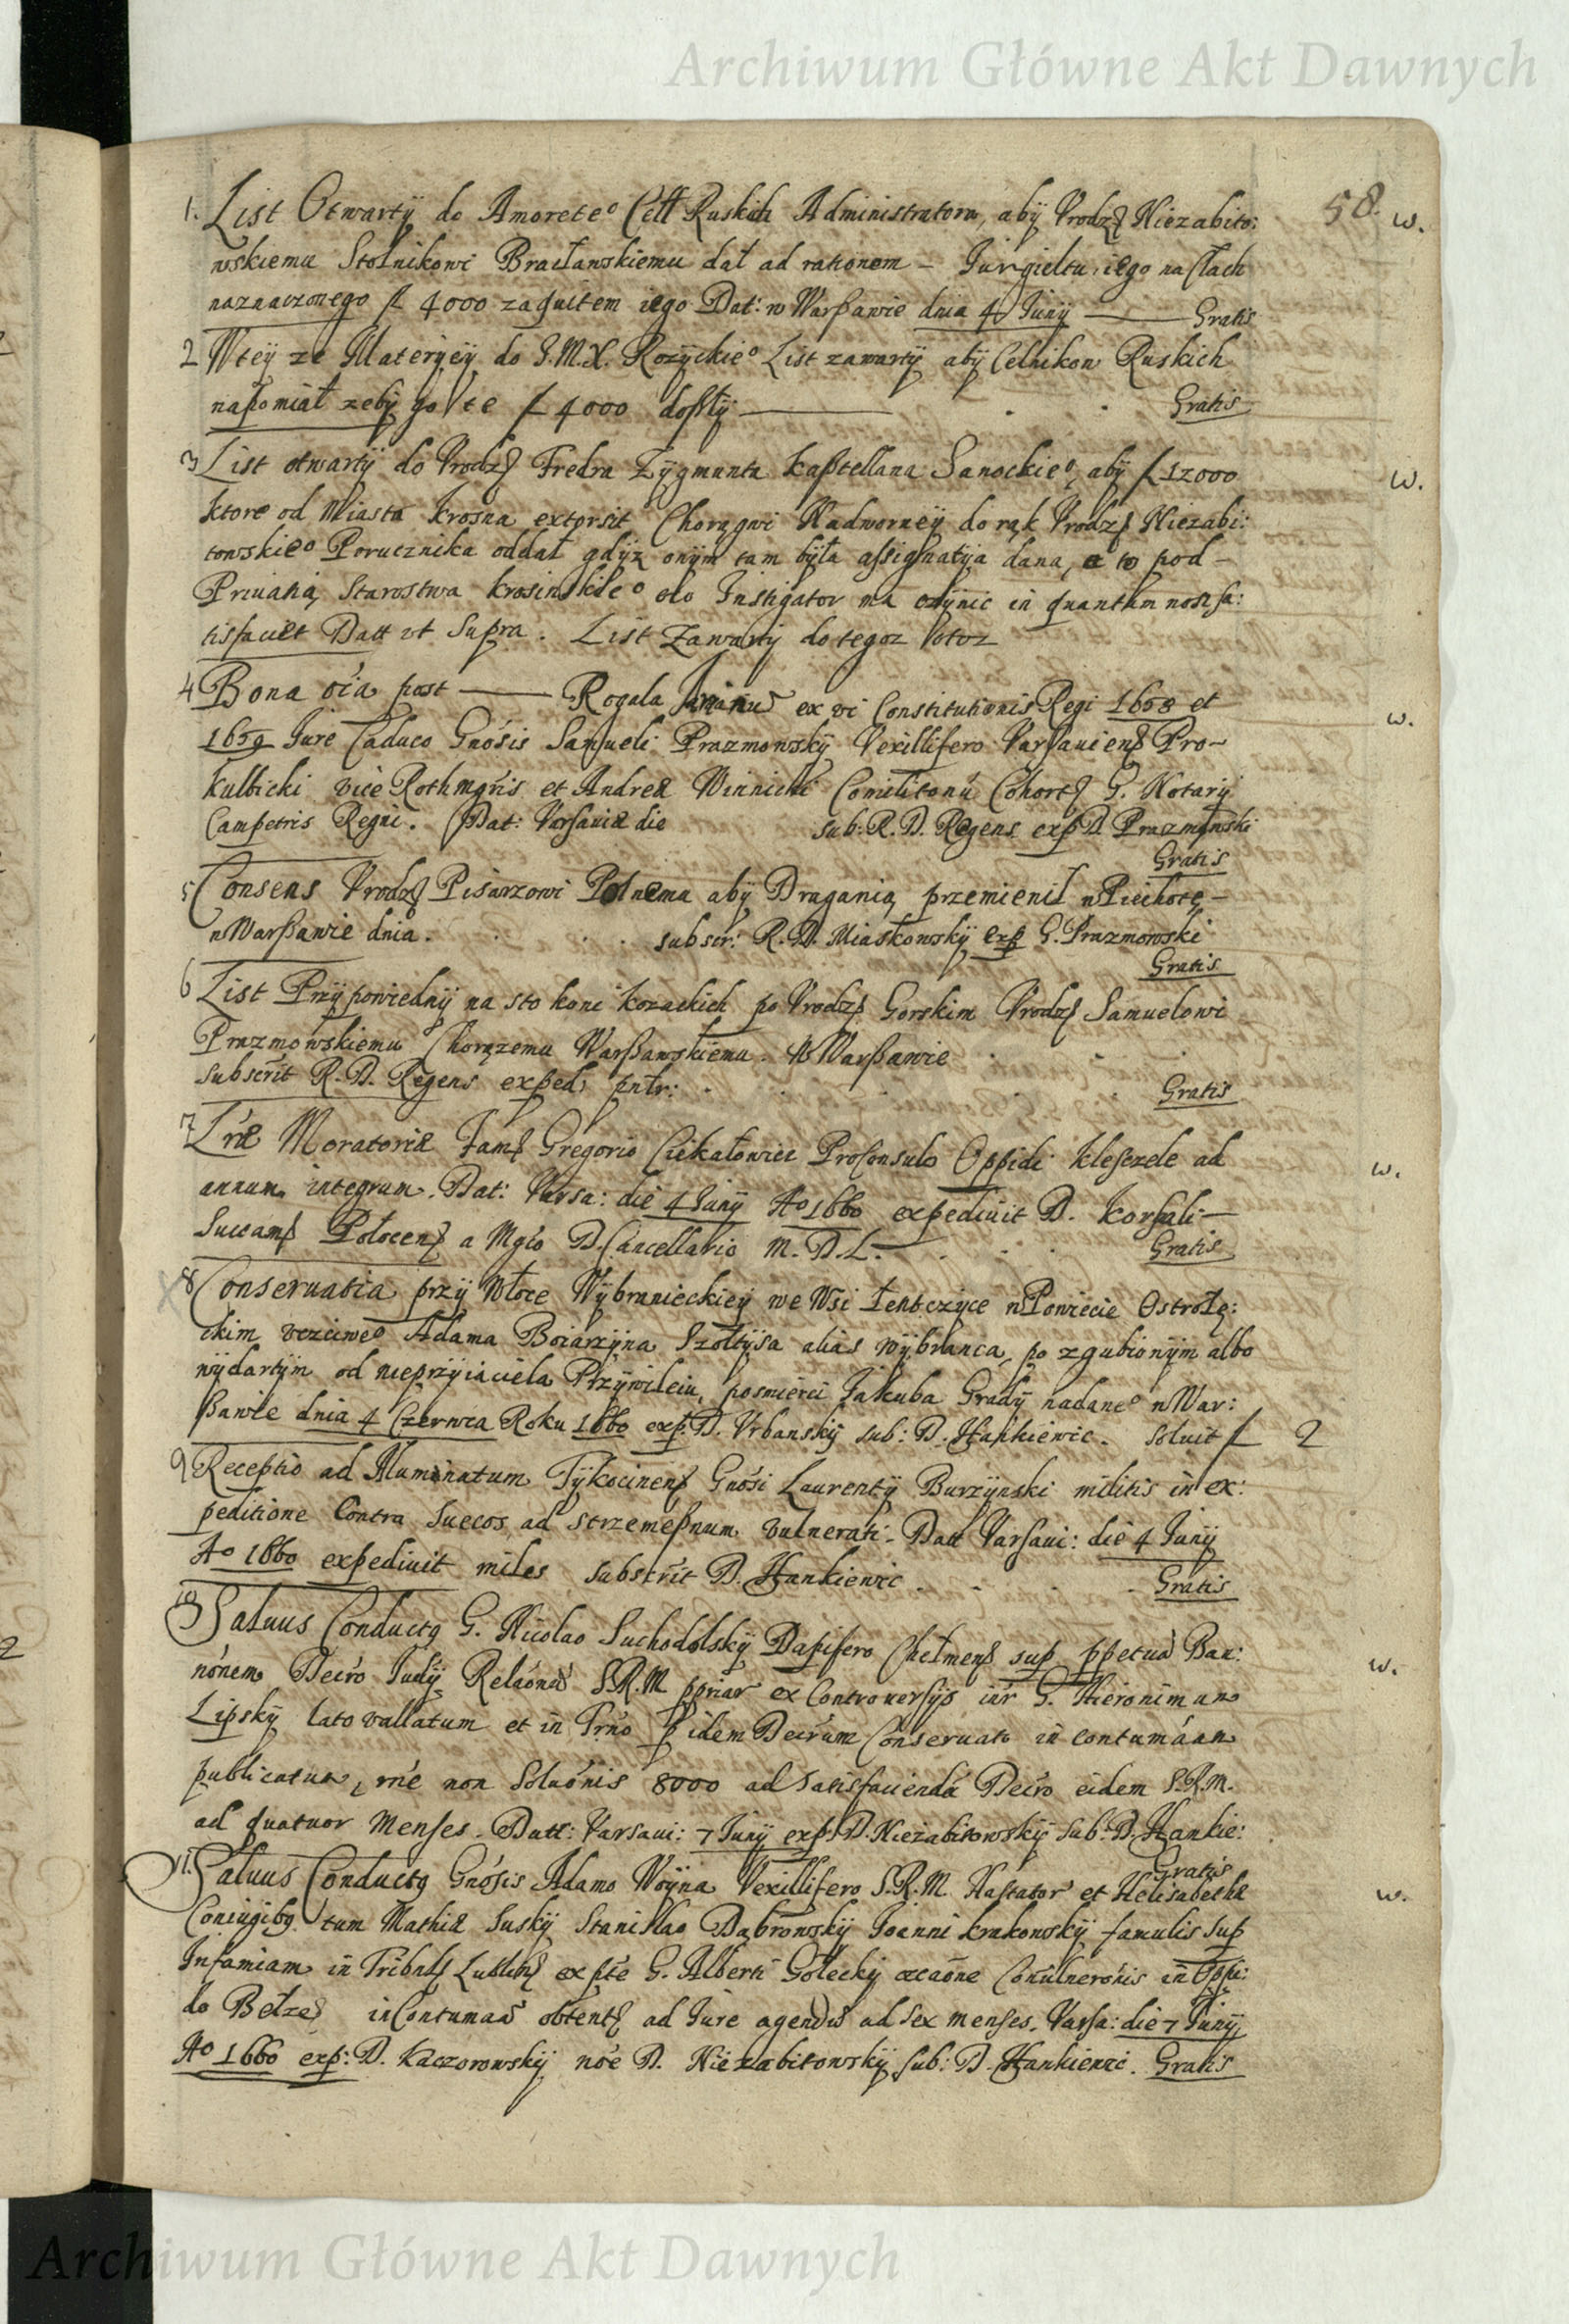 Archiwum Główne Akt Dawnych
58. w.
1. List Otwartÿ do Amorete° Cell Ruskich Administratora, abÿ Vrodz Niezabito:
wskiemu Stolnikowi Bracławskiemu dał ad rationem – Jurgieltu iego na Cłach
naznaczonego fl 4000 za quitem iego Dat: w Warßawie dnia 4 Junÿ — Gratis
2 W teÿ ze Materÿeÿ do J.M.X. Rozÿckie° List zawartÿ abÿ Celnikow Ruskich
napomiał zebÿ go te fl 4000 doszłÿ — Gratis
3 List otwartÿ do Vrodz Fredra Zÿgmunta Kasztellana Sanockie°, abÿ fl 12000 w.
ktore od Miasta Krosna extorsit Chorągwi Nadworneÿ do rąk Vrodz Niezabi:
towskie° Porucznika oddał gdÿz onÿm tam bÿła assignatÿa dana, a to pod –
Priuatią Starostwa Krosinskie° o co Instigator ma czÿnic in quantum non sa:
tisfaciet Datt vt Supra. List Zawartÿ do tegoz
4 Bona oia post — Rogala ex vi Constitutionis Regi 1658 et w.
1659 Jure Caduco Gnosis Samueli Prazmowskÿ Vexillifero Varsauiens Pro–
kulbicki vice Rothmgris et Andrea Winnicki Comilitonu Cohort G. Notarÿ
Campetris Regni. Dat: Varsauiæ die sub: R. D. Regens exp D Prazmowski
Gratis
5 Consens Vrodz Pisarzowi Polnema abÿ Dragania przemienił w Piechotę –
w Warßawie dnia. subscr: R. D. Miaskowskÿ exp G. Prazmowski
Gratis
6 List Przÿpowiednÿ na sto koni kozackich po Vrodz Gorskim Vrodz Samuelowi
Prazmowskiemu Chorązemu Warßawskiemu. W Warßawie
subscrit R. D. Regens exped pntr: Gratis
7 Lræ Moratoriæ Fam Gregorio Ciekałowicz ProConsulo Oppidi Kleszczele ad w.
annum integrum. Dat: Varsa: die 4 Junÿ A° 1660 expediuit D. Korsak –
Succam Połocen a Mgco D. Cancellario M. D. L. — Gratis
8 Conseruatia przÿ Włoce Wÿbranieckieÿ we Wsi w Powiecie Ostrołę:
ckim vczciwe° Adama Boiarzÿna Szołtÿsa alias wÿbranca, po zgubionÿm albo
wÿdartÿm od nieprzÿiaciela Przÿwileiu, po smierci Jakuba Gradÿ nadane° w War:
ßawie dnia 4 Czerwca Roku 1660 exp. D. Vrbanskÿ sub: D. Hankiewic. soluit fl 2
9 Receptio ad Alumnatum Tÿkocinen Gnosi Laurentÿ Burzÿnski militis in ex:
peditione Contra Suecos ad Strzemeßnum vulnerati. Datt Varsaui: die 4 Junÿ
A° 1660 expediuit miles subscrit D. Hankiewic. Gratis
10 Saluus Conduct9 G. Nicolao Suchodolskÿ Dapifero Chełmen sup ppetua Ban: w.
nonem Decro Judÿ Relaonu S.R.M. ppriar ex Controuersÿs intr G. Hieronimum
Lipskÿ lato vallatum et in Trno p idem Decrum Conseruato in contumaam
publicatum, rne non Soluonis 8000 ad satisfacienda Decro eidem S.R.M.
ad quatuor Menses. Datt: Varsaui: 7 Junÿ exp. D. Niezabitowskÿ Sub: D. Hankie:
Gratis
11. Saluus Conduct9 Gnosis Adamo Woÿna Vexillifero S.R.M. Hastator et Helisabethæ w.
Coniugib9 tum Mathiæ Suskÿ Stanislao Dąbrowskÿ Joanni Krakowskÿ famulis sup
Infamiam in Tribnls Lublin ex pte G. Alberti Goleckÿ occaone Conulneronis in Oppi:
do Bełze in Contumaa obtent ad Jure agendu ad sex menses. Varsa: die 7 Junÿ
A° 1660 exp: D. Kaczorowskÿ noe D. Niezabitowskÿ sub: D. Hankiewic. Gratis
Archiwum Główne Akt Dawnych